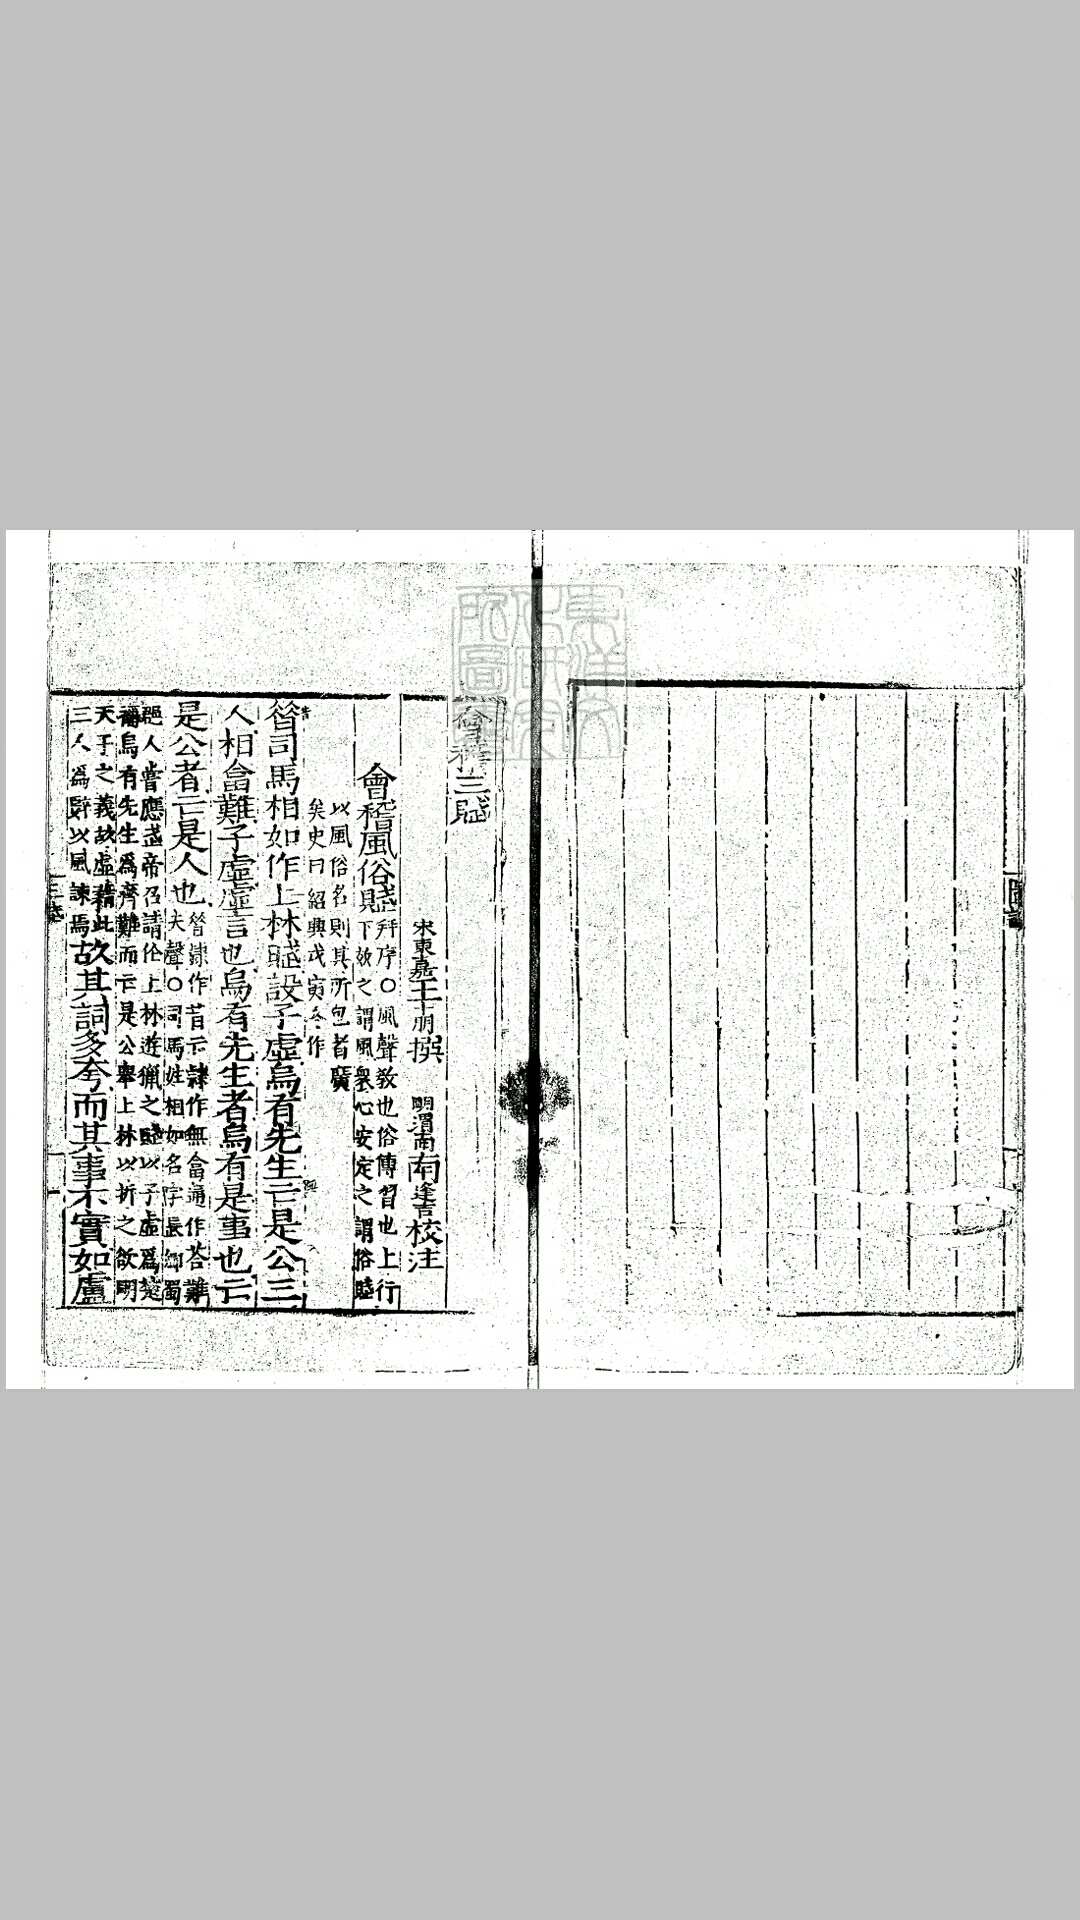 會稽三賦
宋東嘉王十朋撰 明渭南南逢吉校注
會稽風俗賦
并序○風聲敎也俗傳習也上行
下效之謂風衆心安定之謂俗賦
以風俗名則其所包者廣
矣史曰紹興戊寅冬作
晉司馬相如作上林賦設子虛烏有先生亡是公三
人相畣難子虛虛言也烏有先生者烏有是事也亡
是公者亡是人也
夫聲○司馬姓相如名字長卿蜀
郡人嘗應武帝召請作上林遊獵之賦以子虛爲楚
稱烏有先生爲齊難而亡是公舉上林以折之欲明
天子之義故虛藉此
三人爲辭以風諫焉
故其詞多夸而其事不實如盧